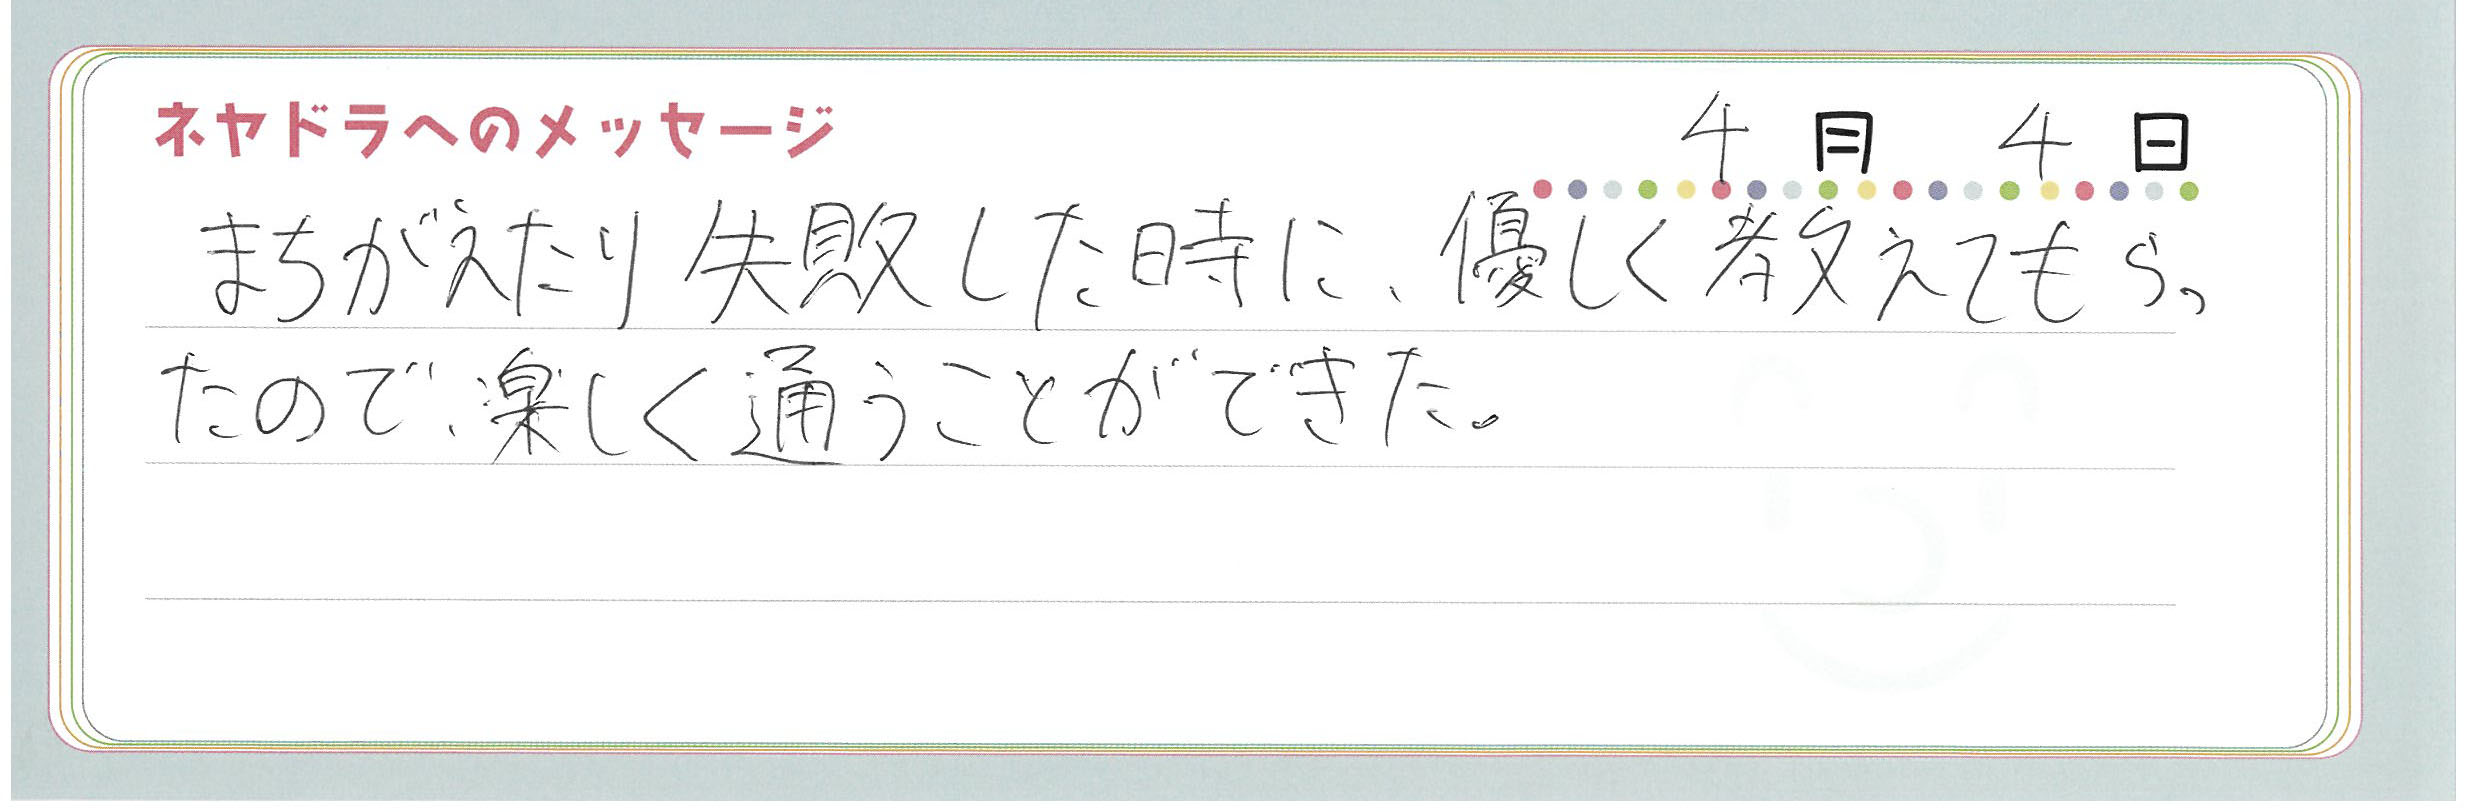 ネヤドラへのメッセージ
4月 4日
まちがえたり失敗した時に、優しく教えてもらっ
たので、楽しく通うことができた。